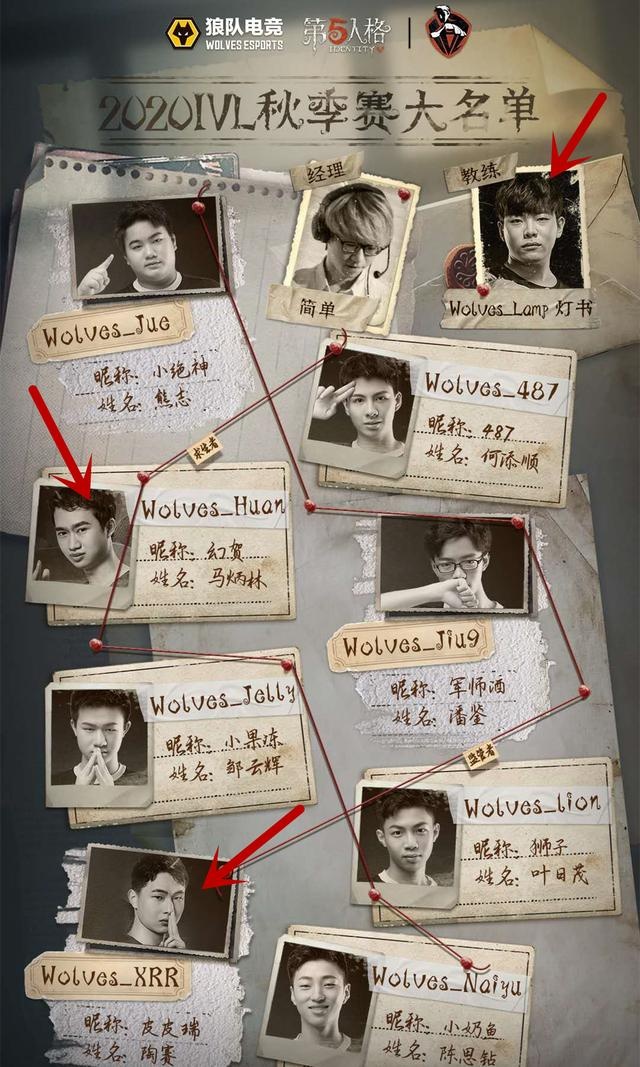 狼队电竞
WOLVES ESPORTS
第5人格
IDENTITY V
2020IVL秋季赛大名单
经理
简单
教练
Wolves_Lamp 灯书
Wolves_Jue
昵称：小绝神
姓名：熊志
Wolves_487
昵称：487
姓名：何添顺
求生者
Wolves_Huan
昵称：幻贺
姓名：马炳林
Wolves_Jiu9
昵称：军师酒
姓名：潘鉴
Wolves_Jelly
昵称：小果冻
姓名：邹云辉
监管者
Wolves_lion
昵称：狮子
姓名：叶日茂
Wolves_XRR
昵称：皮皮瑞
姓名：陶赛
Wolves_Naiyu
昵称：小奶鱼
姓名：陈恩钻